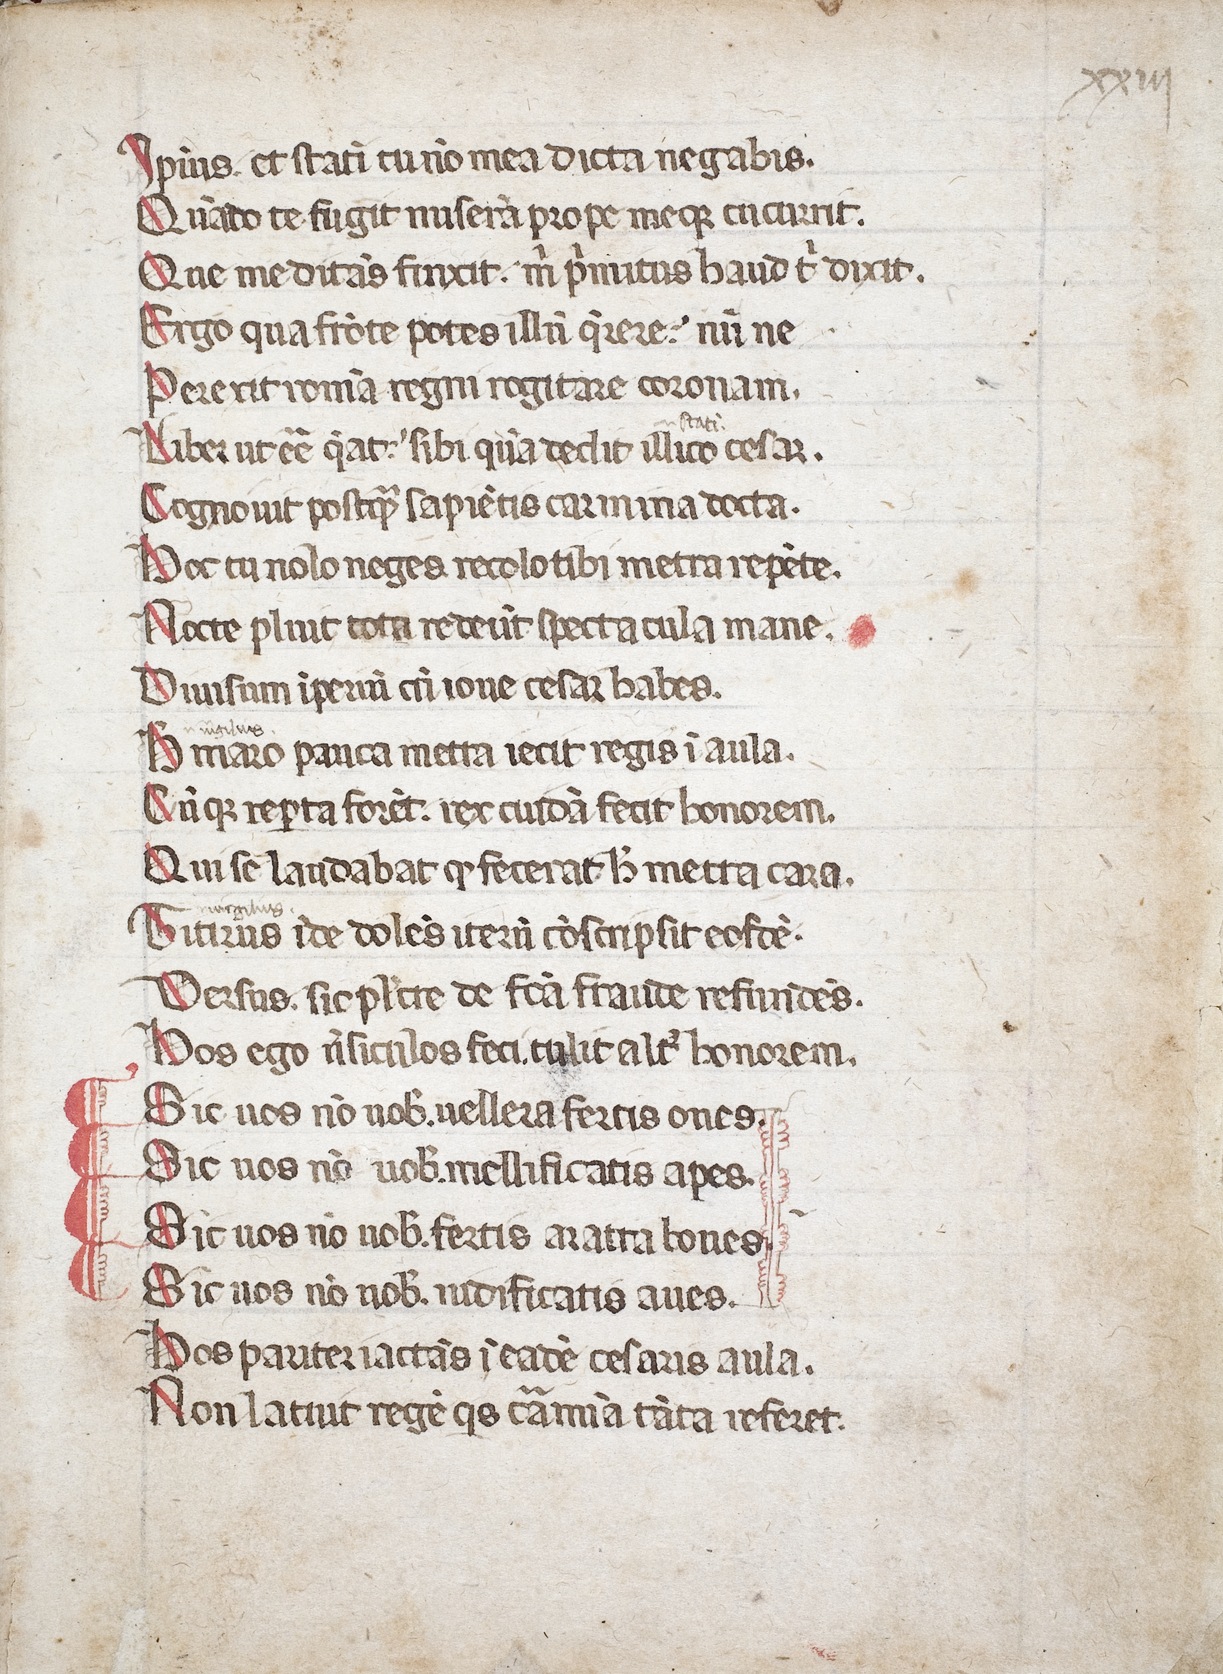 xxiii
Ipius. et stati tu nō mea dicta negabis.
Quādo te fugit miserā prope meqꝫ cucurrit.
Que meditās finxit. m̄ p̄mitus haud t̄ dixit.
Ergo qua frōte potes illū q̄rere: nū ne
Perexit romā regni rogitare coronam.
stati.
Liber ut eē q̄at: sibi quā dedit illico cesar.
Cognouit postꝙ̄ sapiētis carmina docta.
Hoc tu nolo neges recolo tibi metra repēte.
Nocte pluit tota redeūt spectacula mane.
Diuisum īperiū cū ioue cesar habes.
uirgilius.
H̄ maro pauca metra iecit regis ī aula.
Cūqꝫ reꝑta forēt. rex cuidā fecit honorem.
Qui se laudabat ꝙ fecerat h̄ metra cara.
uirgilius.
Titirus īde dolēs iterū cōscripsit eosdē.
Versus. sic pl̄cte de fc̄ā fraude refundēs.
Hos ego ūsiculos feci. tulit alt̄ honorem.
Sic uos nō uob̄. uellera fertis oues.
Sic uos nō uob̄. mellificatis apes.
Sic uos nō uob̄. fertis aratra boues.
Sic uos nō uob̄. nidificatis aues.
Hos pariter iactās ī eadē cesaris aula.
Non latuit regē qs cār̄mīa tāta referet.